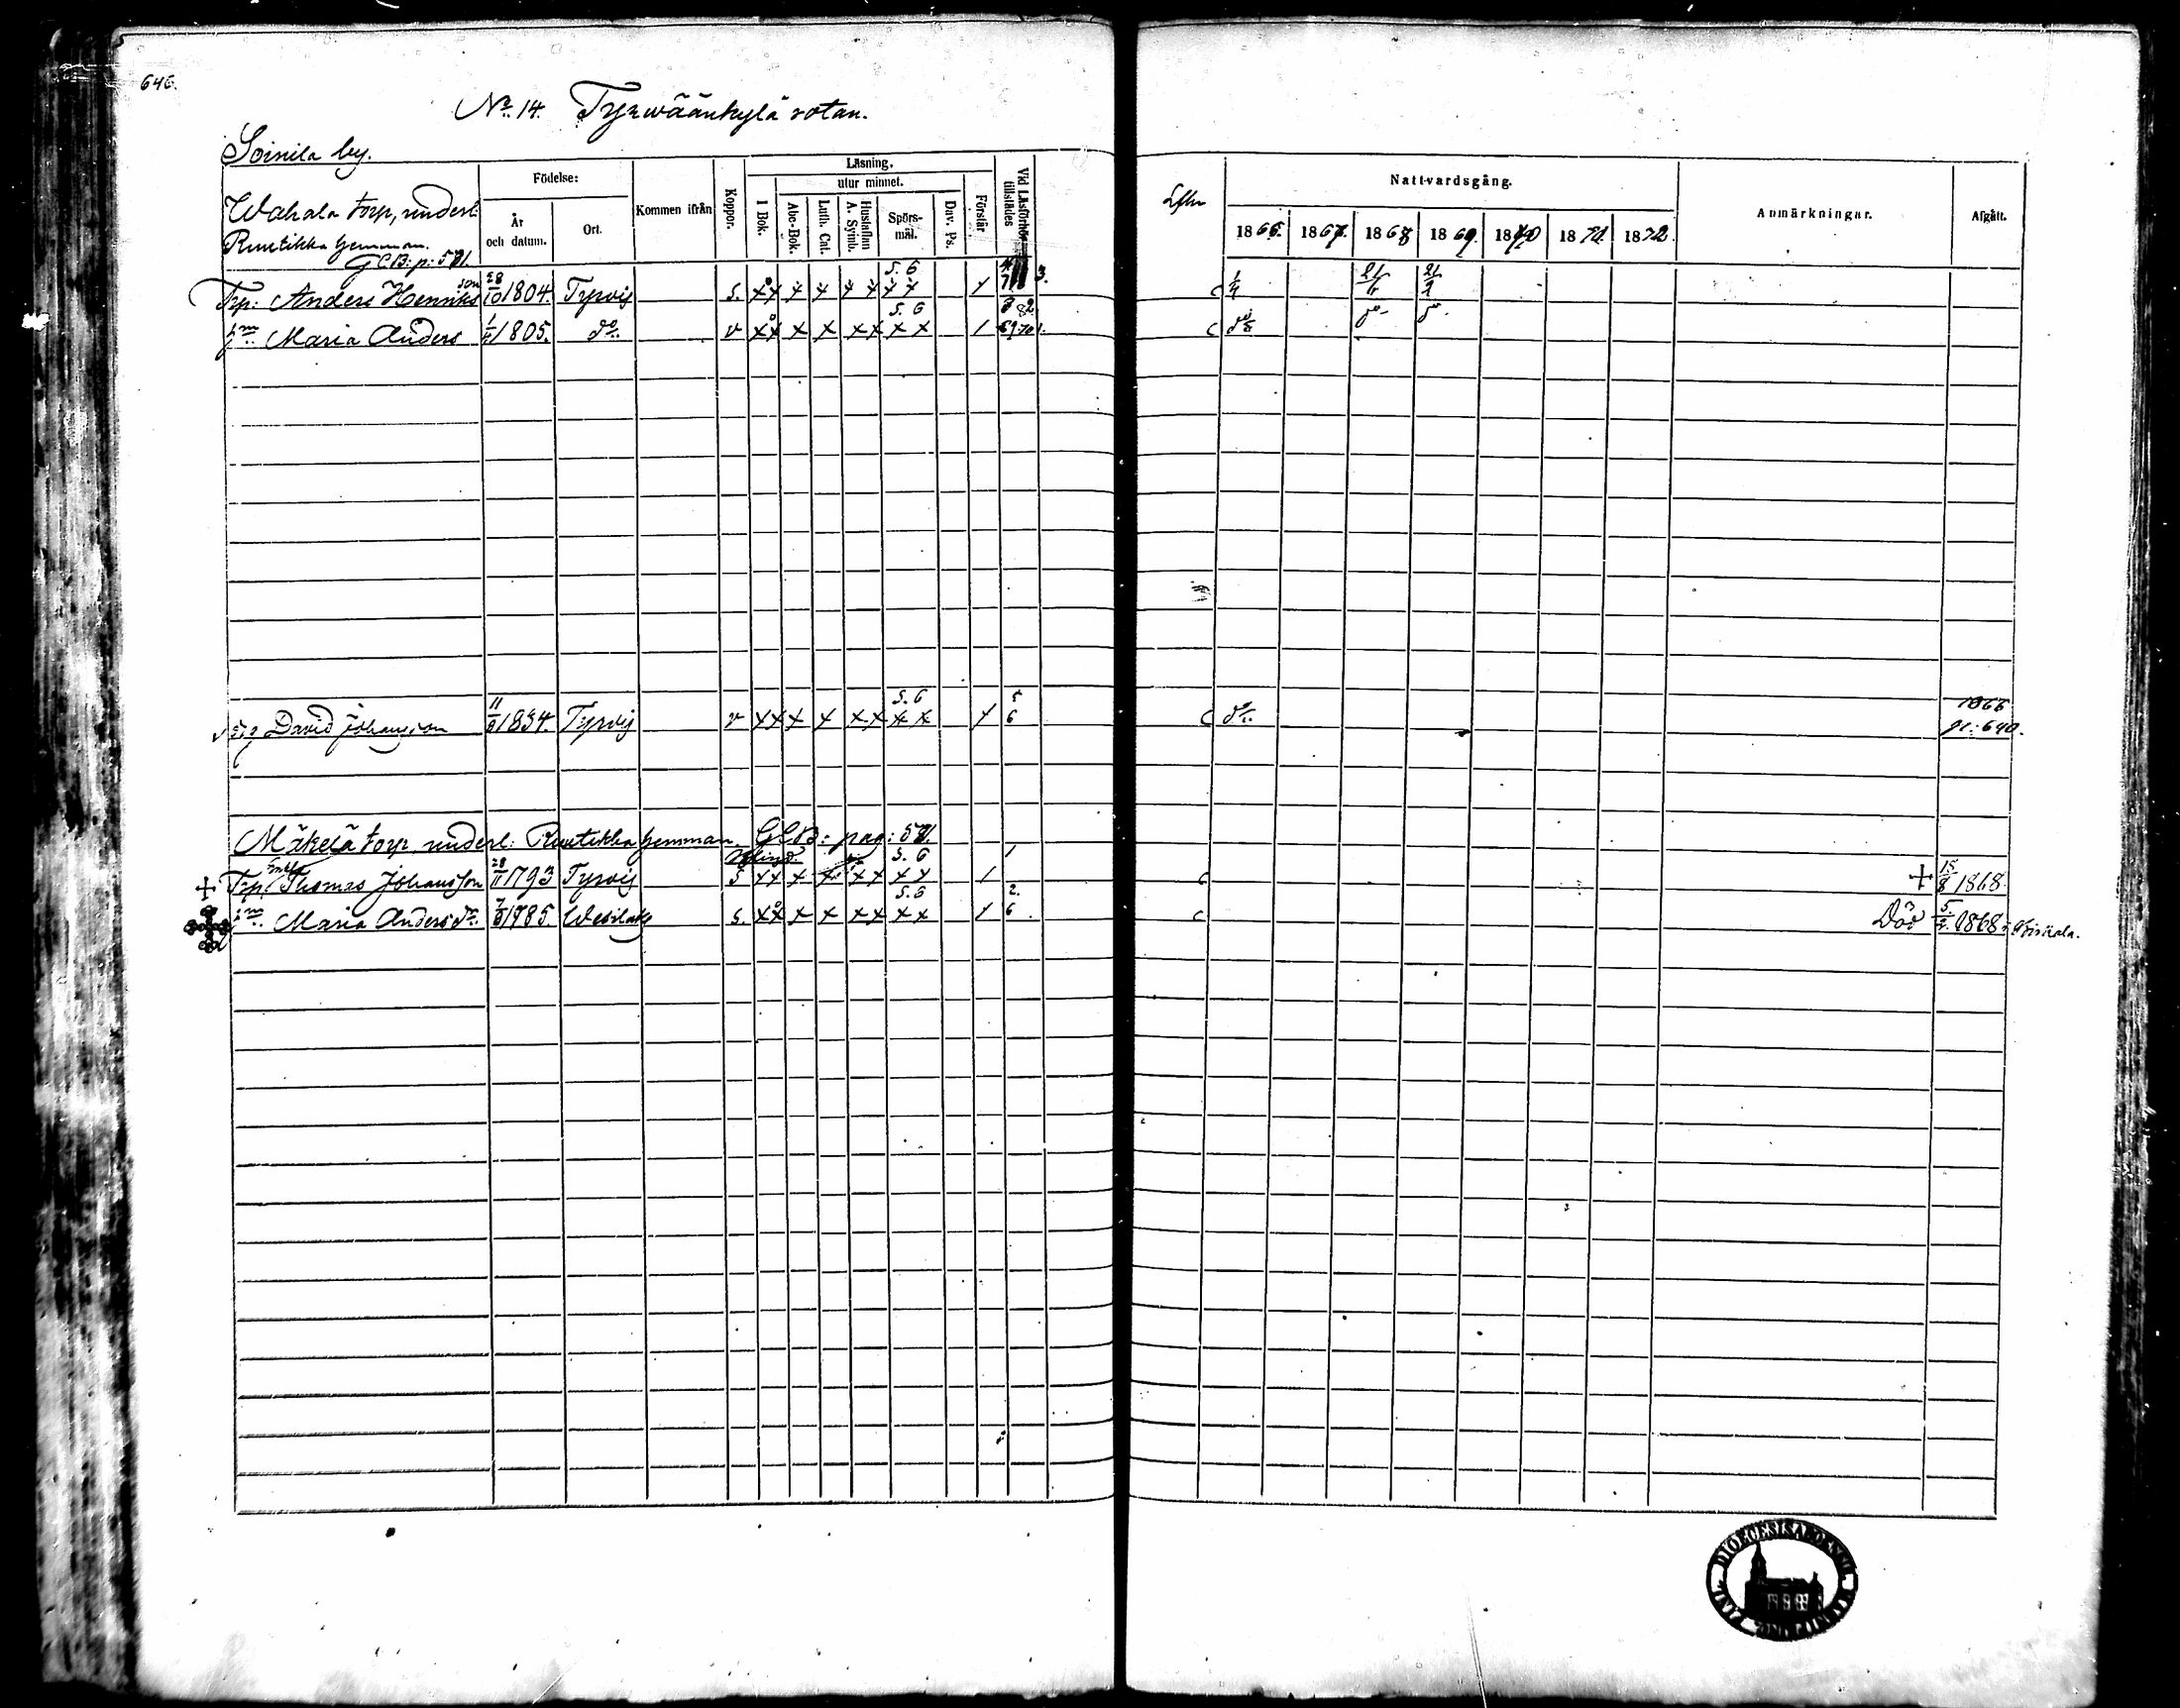 646.
No. 14. Tyrwäänkylä rotan.
Soinila by.
Wahala torp, underl:
Ruutikka hemman.
G C B: p: 571.
Födelse:
År och datum.
Ort.
Kommen ifrån
Koppor.
Läsning.
I Bok.
utur minnet.
Abc-Bok.
Luth. Cat.
Hustaflan A. Symb.
Spörsmål.
Dav. Ps.
Förstår
Vid Läsförhör tillstädes
Nattvardsgång.
1866. 1867. 1868 1869. 1870 1871. 1872.
Anmärkningar.
Afgått.
Trp: Anders Henriksson 28/10 1804. Tyrvis s. x x x x x x x x S. 6 3. C 21/6
Maria Anders 1805. do. v x x x x x x x x S. 6 1 69.70 C do do
David Johansson 11/8 1834. Tyrvis v x x x x x x x x S. 6 5 6 C 1866 p: 640.
Mäkelä torp, underl: Ruutikka hemman. G C B: pag: 571.
+ Trp. Thomas Johansson 28/11 1793 Tyrvis S x x x x x x x S. 6 1 1 C + 15/8 1868.
Maria Andersdr. 1785. Wesilaks s. x x x x x x x x S. 6 2. 6 C Död 5/2. 1868
DIOECESIS ABOENSIS